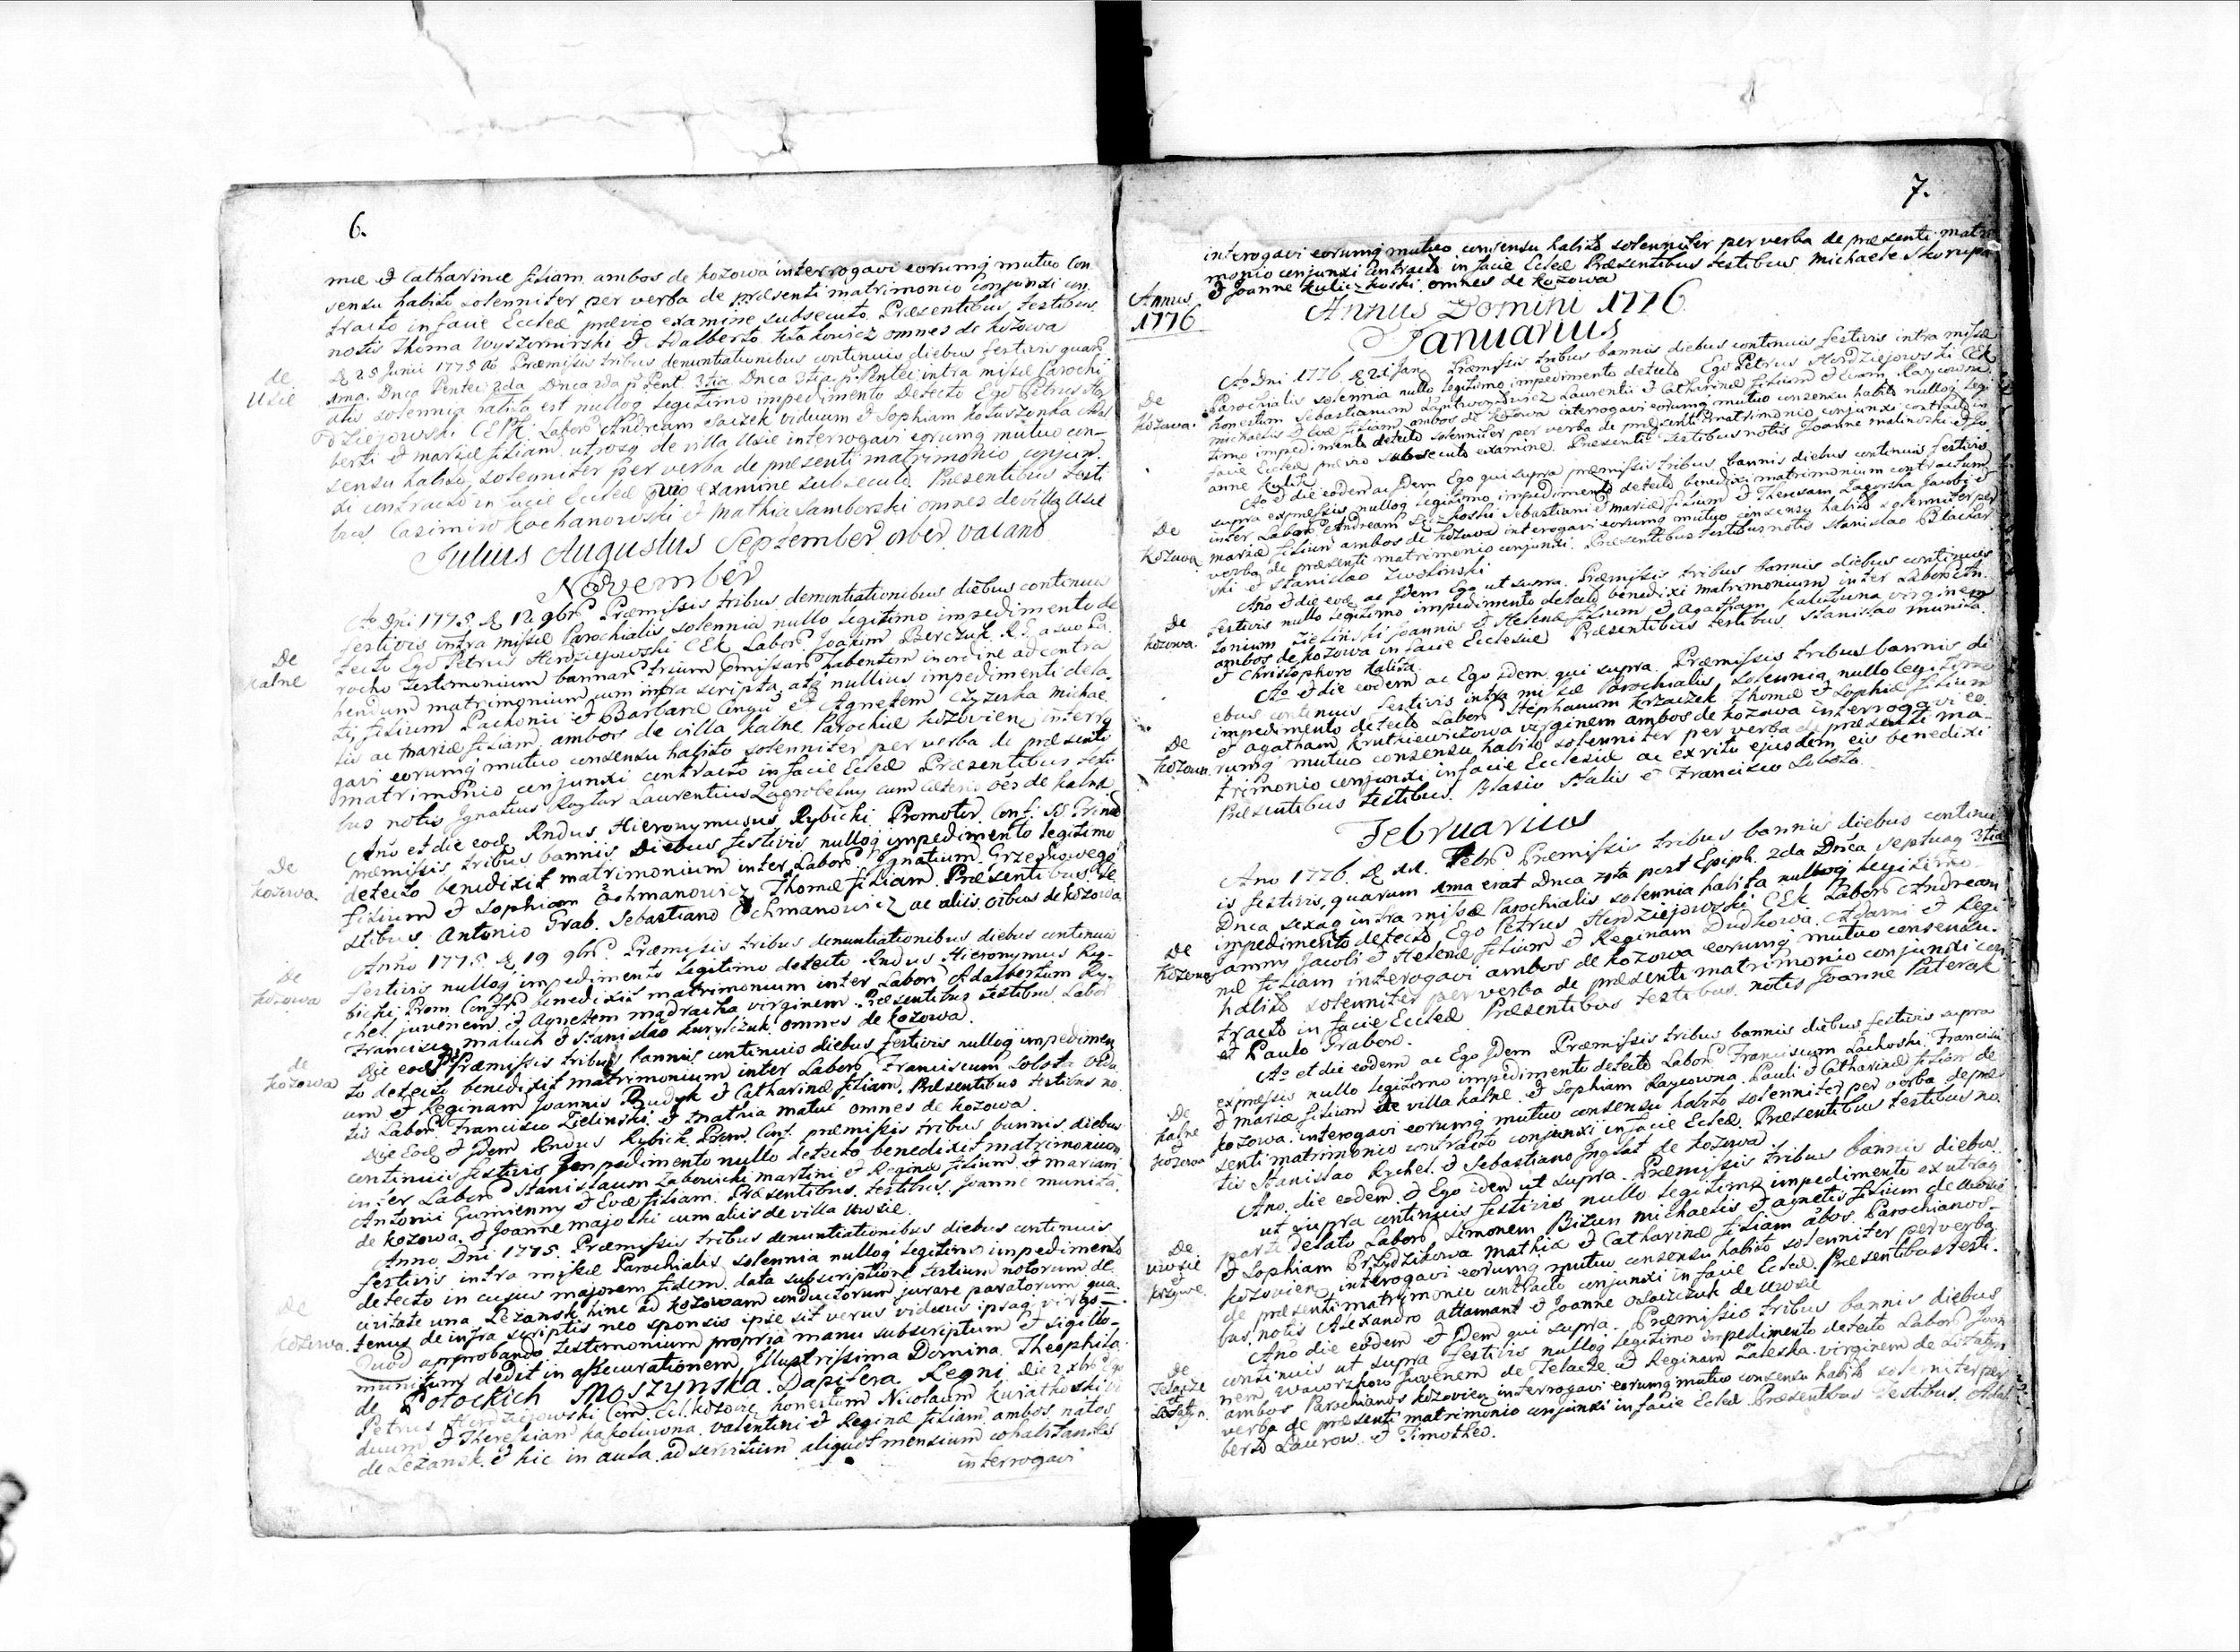 6.
mæ et Catharinæ filiam ambos de Kozowa interrogavi eorumq mutuo con
sensu habito solenniter per verba de præsenti matrimonio conjunxi con
tracto in facie Eccleæ prævio examine subsecuto. Præsentibus testibus
notis Thoma et Adalberto omnes de Kozowa
de
Usie
D 25 Junii 1775 Ao Præmissis tribus denuntiationibus continuis diebus festivis quarū
1ma Dnca Pentec 2da Dnca 2da p Pent. 3tia Dnca 3tia p Pentec intra missæ Parochi
alis solennia habita est nulloq legitimo impedimento detecto Ego Petrus Her
dziejowski CEK Labor Andream viduum et Sophiam
berti et Mariæ filiam utrosq de villa Usie interrogavi eorumq mutuo con-
sensu habito solenniter per verba de præsenti matrimonio conjun
xi contracto in facie Eccleæ examine subsecuto. Præsentibus testi
bus Casimiro Kochanowski et Mathia Samborski omnes de villa Usie
Julius Augustus September 8ber vacant
November
Ao Dni 1775 D 12 9bris Præmissis tribus denuntiationibus diebus continuis
festivis intra missæ Parochialis solennia nullo legitimo impedimento de
De
Kalne
tecto Ego Petrus Herdziejowski CEK Labor Joakim Berczuk R. G. a suo Pa
rocho testimonium bannar trium præmissar habentem in ordine ad contra
hendum matrimonium cum infra scripta atq nullius impedimenti
filium Pachonii et Barbaræ et Agnetem Czyzerska Michae
lis ac Mariæ filiam ambos de villa Kalne Parochiæ Kozovien interro
gavi eorumq mutuo consensu habito solenniter per verba de præsenti
matrimonio conjunxi contracto in facie Eccleæ Præsentibus testi
bus notis Ignatius Laurentius Zagrobelny cum cæteris oēs de Kalne
De
Kozowa
Ano et die eod Rndus Hieronymus Rybicki Promotor Conf: SS Trind
præmissis tribus banniis diebus festivis nulloq impedimento legitimo
detecto benedixit matrimonium inter Labor Ignatium
filium et Sophiam Ochmanowicz Thomæ filiam. Præsentibus te
stibus Antonio Grab. Sebastiano Ochmanowicz ac aliis oibus de Kozowa
De
Kozowa
Anno 1775 D 19 9bris. Præmissis tribus denuntiationibus diebus continuis
festivis nulloq impedimento legitimo detecto Rndus Hieronymus Ry-
bicki Prom. Conftis benedixit matrimonium inter Labor Adalbertum Ry-
chel juvenem et Agnetem Mądracka virginem. Præsentibus testibus Labor
Francisco Maluch et Stanislao omnes de Kozowa.
de
Kozowa
Die eod Præmissis tribus bannis continuis diebus festivis nulloq impedimen
to detecto benedixit matrimonium inter Labor Franciscum Lobota vidu
um et Reginam Joannis Dudyk et Catharinæ filiam. Præsentibus testibus no
tis Labor Francisco Zielinski et Mathia omnes de Kozowa.
Die Eod et idem Rndus Rybick. Prom. Conf. præmissis tribus bannis diebus
continuis festivis impedimento nullo detecto benedixit matrimonium
inter Labor Stanislaum Martini et Reginæ filium et Mariam
Antonii Gumienny et Evæ filiam. Præsentibus testibus Joanne Munita
de Kozowa et Joanne Majoski cum aliis de villa
Anno Dni 1775. Præmissis tribus denuntiationibus diebus continuis
festivis intra missæ Parochialis solennia nulloq legitimo impedimento
detecto in cujus majorem fidem data subscriptione testium notorum de
De
Kozowa.
civitate una Leżansk hinc ad Kozowam conductorum jurare paratorum qua
tenus de infra scriptis neo sponsis ipse sit verus viduus ipsaq virgo
Quod approbando testimonium propria manu subscriptum et sigillo
munitum dedit in assecurationem Illustrissima Domina Theophila
de Potockich Moszynska Dapifera Regni. Die 2 xbris Ego
Petrus Herdziejowski Com. Ecl. Kozovie honestum Nicolaum vi
duum et Theressiam Valentini et Reginæ filiam ambos natos
de Leżansk et hic in aula ad servitium aliquot mensium cohabitantes
interrogavi
7.
interogavi eorumq mutuo consensu habito solenniter per verba de præsenti matri
monio conjunxi contracto in facie Eccleæ Præsentibus testibus Michaele Skorupa
et Joanne Kuliczkoski omnes de Kozowa
Annus
1776
Annus Domini 1776
Januarius
De
Kozowa.
Ao Dni 1776 D 21 Jan Præmissis tribus bannis diebus continuis festivis intra missæ
Parochialis solennia nullo legitimo impedimento detecto Ego Petrus Herdziejowski CEK
honestum Sebastianum Laurentii et Catharinæ filium et
Michaelis et Evæ filiam ambos de Kozowa interogavi eorumq mutuo consensu habito nulloq legi
timo impedimento detecto solenniter per verba de præsenti matrimonio conjunxi contracto in
facie Eccleæ prævio subsecuto examine. Præsentib testibus notis Joanne Malinoski et Jo
anne Kulik
De
Kozowa
Ao et die eodem ac idem Ego qui supra præmissis tribus bannis diebus continuis festivis
supra expressis nulloq legitimo impedimento detecto benedixi matrimonium contractum
inter Labor Andream Sebastiani et Mariæ filium et Theresam Zagorska Jacobi et
Mariæ filiam ambos de Kozowa interogavi eorumq mutuo consensu habito solenniter per
verba de præsenti matrimonio conjunxi. Præsentibus testibus notis Stanislao Blachar
ski et Stanislao Zwolinski
De
Kozowa.
Ano et die eod ac idem Ego ut supra. Præmissis tribus bannis diebus continuis
festivis nullo legitimo impedimento detecto benedixi matrimonium inter Labor An
tonium Zielinski Joannis et Helenæ filium et Agatham virginem
ambos de Kozowa in facie Ecclesiæ Præsentibus testibus Stanislao Munita
et Christophoro Kalita.
De
Kozowa
Ao et die eodem ac Ego idem qui supra. Præmissis tribus bannis di
ebus continuis festivis intra missæ Parochialis solennia nullo legitimo
impedimento detecto Labor Stephanum Krzaczek Thomæ et Sophiæ filium
et Agatham Krutkiewiczowa virginem ambos de Kozowa interrogavi eo
rumq mutuo consensu habito solenniter per verba de præsenti ma
trimonio conjunxi in facie Ecclesiæ ac ex ritu ejusdem eis benedixi
Præsentibus testibus Blasio Stalis et Francisco Lobota
Februarius
De
Kozowa
Ano 1776 D 11. Febr Præmissis tribus bannis diebus continu
is festivis, quarum 1ma erat Dnca post Epiph. 2da Dnca Septuag 3tia
Dnca Sexag intra missæ Parochialis solennia habita nulloq legitimo
impedimento detecto Ego Petrus Herdziejowski CEK Labor Andream
Jacobi et Helenæ filium et Reginam Dudkowa Adami et Regi
næ filiam interogavi ambos de Kozowa eorumq mutuo consensu
habito solenniter per verba de præsenti matrimonio conjunxi con
tracto in facie Eccleæ Præsentibus testibus notis Joanne Paterak
et Paulo Grabow.
De
Kalne
et
Kozowa
Ao et die eodem ac Ego idem Præmissis tribus bannis diebus festivis supra
expressis nullo legitimo impedimento detecto Labor Franciscum Lachoski Francisci
et Mariæ filium de villa Kalne et Sophiam Raycowna Pauli et Catharinæ filiam de
Kozowa interogavi eorumq mutuo consensu habito solenniter per verba de præ
senti matrimonio contracto conjunxi in facie Eccleæ. Præsentibus testibus no
tis Stanislao Rychel et Sebastiano Inglot de Kozowa
De
Uwsie
et
Krzywe
Ano die eodem et Ego idem ut supra. Præmissis tribus bannis diebus
ut supra continuis festivis nullo legitimo impedimento ex utraq
parte delato Labor Simonem Bizun Michaelis et Agnetis filium de Uwsie
et Sophiam Przydzikowa Mathiæ et Catharinæ filiam abos Parochianos
Kozovien interogavi eorumq mutuo consensu habito solenniter per verba
de præsenti matrimonio contracto conjunxi in facie Eccleæ. Præsentibus testi-
bus notis Alexandro Attamant et Joanne de Uwsie
De
Telacze
et
Litatyn.
Ano die eodem et idem qui supra. Præmissis tribus bannis diebus
continuis ut supra festivis nulloq legitimo impedimento detecto Labor Joan
nem Waworzkow juvenem de Telacze et Reginam Zaleska virginem de Litatyn
ambos Parochianos Kozovien interrogavi eorumq mutuo consensu habito solenniter per
verba de præsenti matrimonio conjunxi in facie Eccleæ Præsentibus testibus Adal
berto Laurow et Timotheo.